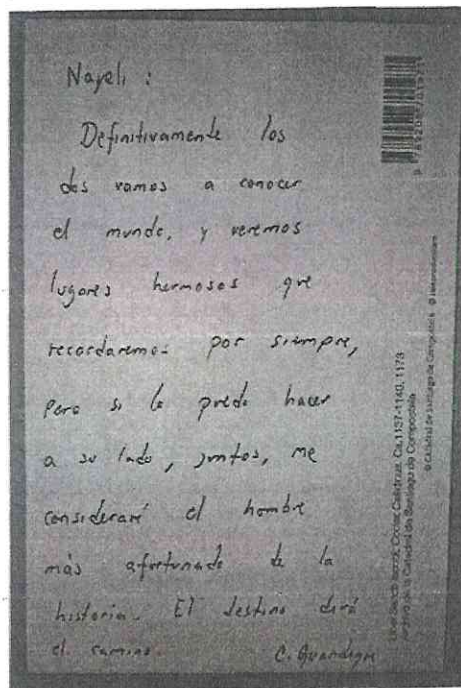 Nayeli :
Definitivamente los
dos vamos a conocer
el mundo, y veremos
lugares hermosos que
recordaremos por siempre,
pero si lo puedo hacer
a su lado, juntos, me
consideraré el hombre
más afortunado de la
historia. El destino dirá
el camino.
C.
Codex Calixtinus, Ca. 1137-1140, 1173
Archivo de la Catedral de Santiago de Compostela
© Catedral de Santiago de Compostela